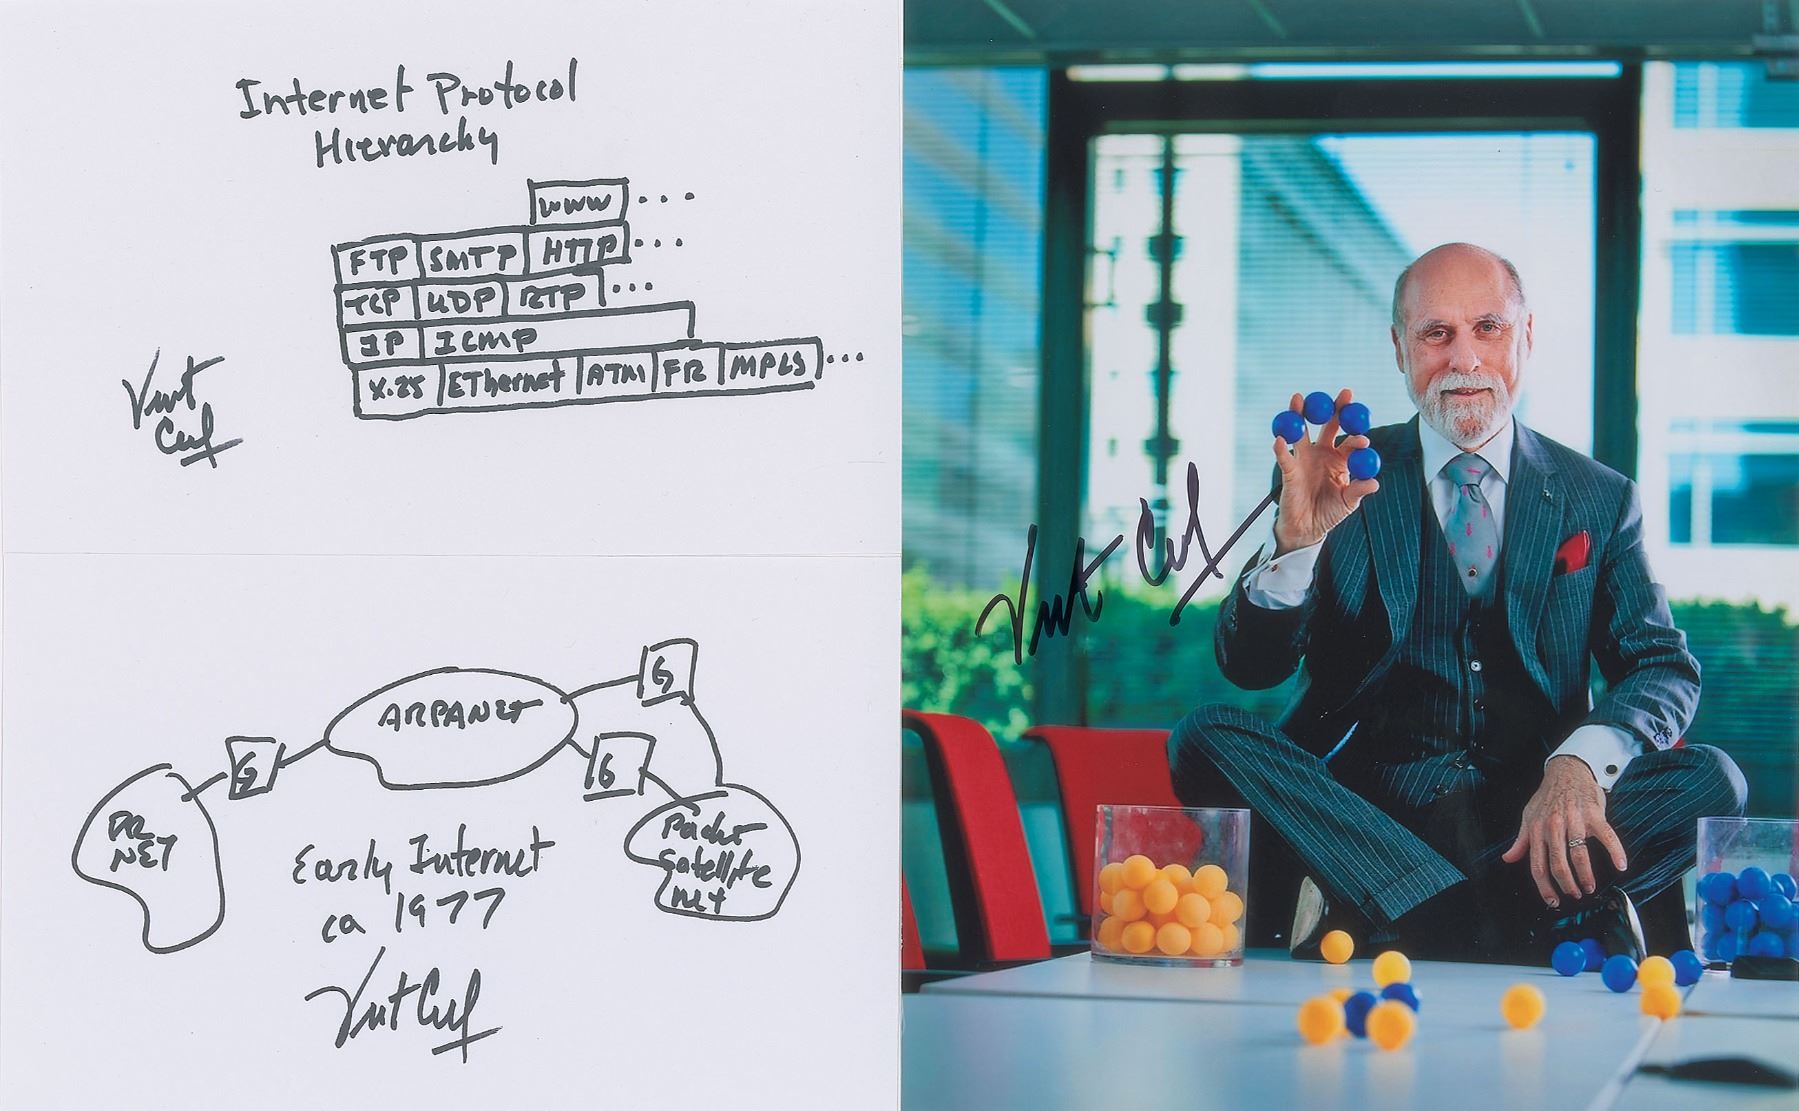 Internet Protocol
Hierarchy
WWW ...
FTP SMTP HTTP ...
TCP UDP RTP ...
IP ICMP
X.25 EThernet ATM FR MPLS ...
Vint
Cerf
G
ARPANET
G
G
PR
NET
Packet
Satellite
net
Early Internet
ca 1977
Vint Cerf
Vint Cerf